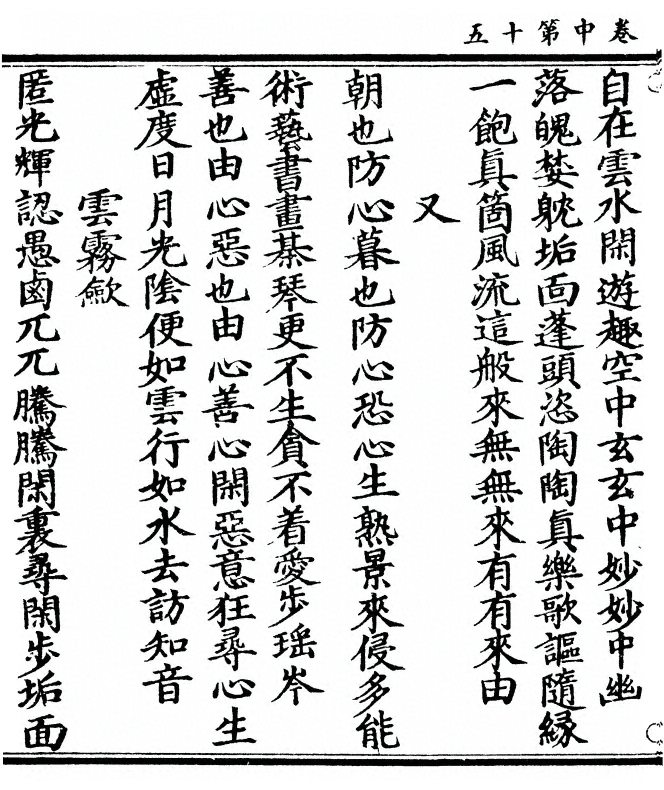 卷中第十五
自在雲水閑遊趣空中玄玄中妙妙中幽
落魄婪躭垢面蓬頭恣陶陶真樂歌謳隨縁
一飽真箇風流這般來無無來有有來由
又
朝也防心暮也防心恐心生熟景來侵多能
術藝書畫棊琴更不生貪不着愛步瑶岑
善也由心惡也由心善心閑惡意狂尋心生
虛度日月光陰便如雲行如水去訪知音
雲霧歛
匿光輝認愚鹵兀兀騰騰閑裏尋閑步垢面